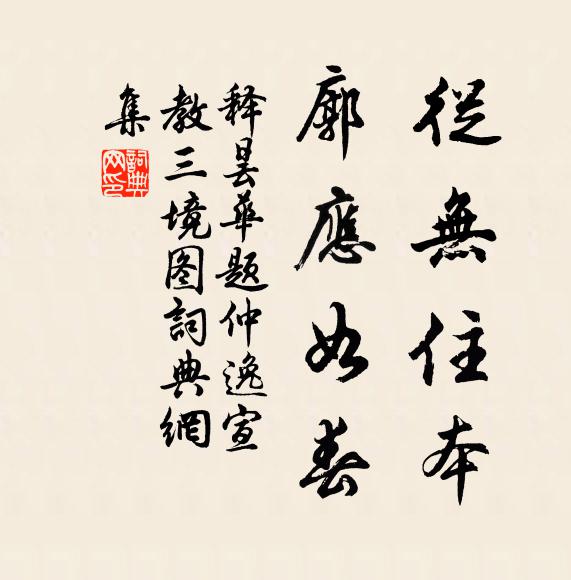 從無住本
廓應如春
釋曇華題仲逸宣
教三境图詞典網
集
詞典网印